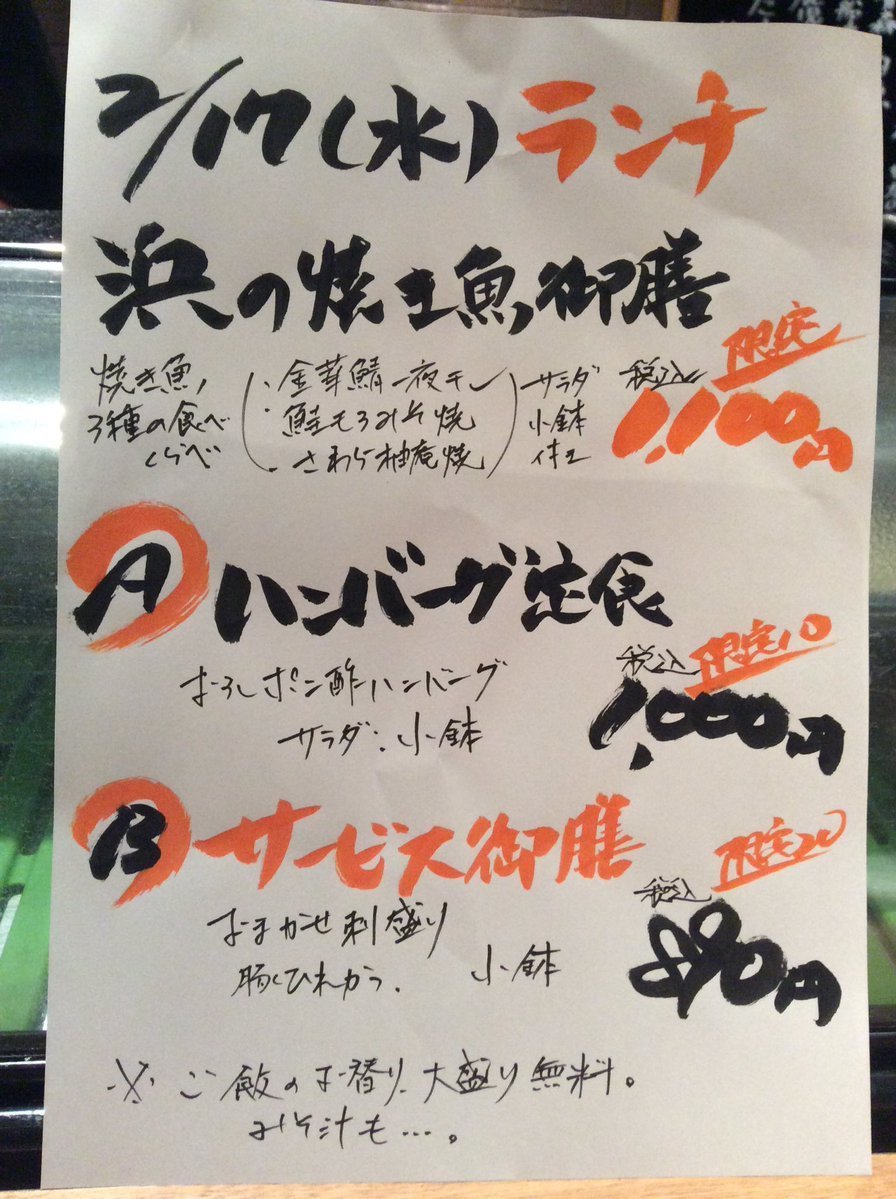 2/17(水)ランチ
浜の焼き魚御膳
限定
焼き魚
3種の食べ
くらべ
・金華鯖一夜干し
・鮭もろみそ焼
・さわら柚庵焼
サラダ
小鉢
付き
税込
1,100円
A ハンバーグ定食
限定10
おろしポン酢ハンバーグ
サラダ、小鉢
税込
1,000円
B サービス御膳
限定20
おまかせ刺盛り
豚ひれかつ、小鉢
税込
890円
※ご飯のお替り、大盛り無料。
みそ汁も…。